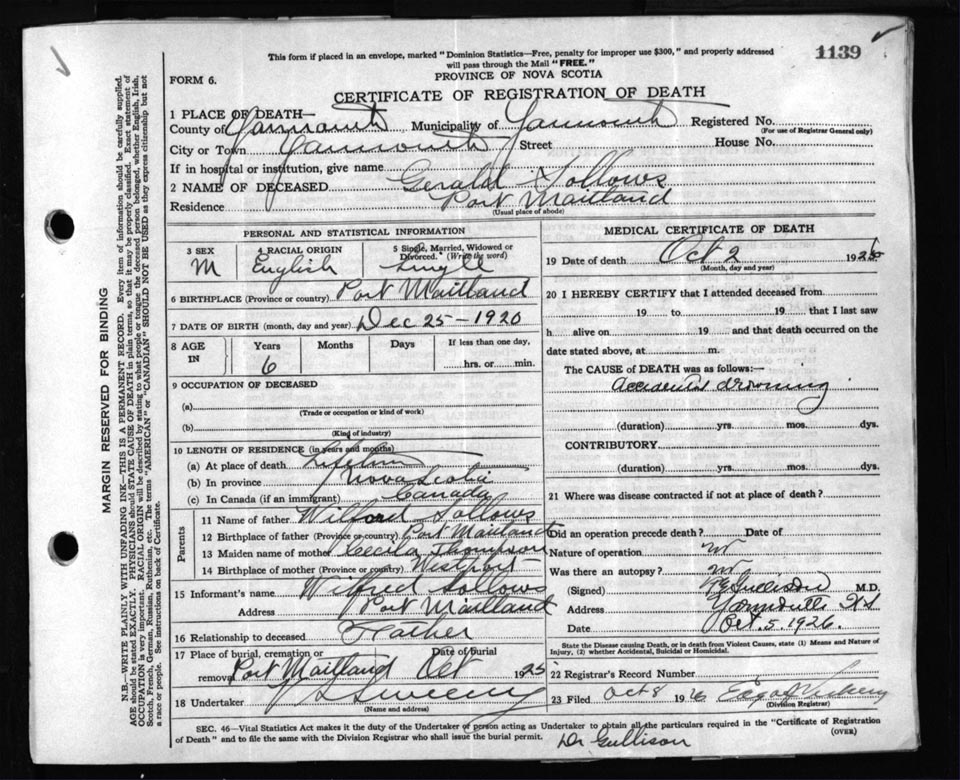 This form if placed in an envelope, marked "Dominion Statistics—Free, penalty for improper use $300," and properly addressed
will pass through the Mail "FREE."
1139
PROVINCE OF NOVA SCOTIA
FORM 6.
CERTIFICATE OF REGISTRATION OF DEATH
1 PLACE OF DEATH—
County of Yarmouth Municipality of Yarmouth Registered No.
(For use of Registrar General only)
City or Town Yarmouth Street House No.
If in hospital or institution, give name
2 NAME OF DECEASED Gerald Sollows
Residence Port Maitland
(Usual place of abode)
PERSONAL AND STATISTICAL INFORMATION
3 SEX M
4 RACIAL ORIGIN English
5 Single, Married, Widowed or Divorced. (Write the word) Single
6 BIRTHPLACE (Province or country) Port Maitland
7 DATE OF BIRTH (month, day and year) Dec 25-1920
8 AGE IN Years Months Days If less than one day,
6 hrs. or min.
9 OCCUPATION OF DECEASED
(a)
(Trade or occupation or kind of work)
(b)
(Kind of industry)
10 LENGTH OF RESIDENCE (in years and months)
(a) At place of death Lifetime
(b) In province Nova Scotia
(c) In Canada (if an immigrant) Canada
Parents
11 Name of father Wilfred Sollows
12 Birthplace of father (Province or country) Port Maitland
13 Maiden name of mother Cecila Thompson
14 Birthplace of mother (Province or country) Westport
15 Informant's name Wilfred Sollows
Address Port Maitland
16 Relationship to deceased Father
17 Place of burial, cremation or removal Date of burial
Port Maitland Oct 1925
18 Undertaker Sweeny
(Name and address)
MEDICAL CERTIFICATE OF DEATH
19 Date of death Oct 2 1926
(Month, day and year)
20 I HEREBY CERTIFY that I attended deceased from
19 to 19 that I last saw
h alive on 19 and that death occurred on the
date stated above, at m.
The CAUSE of DEATH was as follows:—
Accidental drowning
(duration) yrs. mos. dys.
CONTRIBUTORY
(duration) yrs. mos. dys.
21 Where was disease contracted if not at place of death?
Did an operation precede death? Date of
Nature of operation no
Was there an autopsy? no
(Signed) Gullison M.D.
Address Yarmouth NS
Date Oct. 5, 1926.
State the Disease causing Death, or in death from Violent Causes, state (1) Means and Nature of
Injury, (2) whether Accidental, Suicidal or Homicidal.
22 Registrar's Record Number
23 Filed Oct 8 1926
(Division Registrar)
SEC. 46—Vital Statistics Act makes it the duty of the Undertaker or person acting as Undertaker to obtain all the particulars required in the "Certificate of Registration
of Death" and to file the same with the Division Registrar who shall issue the burial permit.
(OVER)
Dr Gullison
MARGIN RESERVED FOR BINDING
N.B.—WRITE PLAINLY WITH UNFADING INK—THIS IS A PERMANENT RECORD. Every item of information should be carefully supplied.
AGE should be stated EXACTLY. PHYSICIANS should STATE CAUSE OF DEATH in plain terms, so that it may be properly classified. Exact statement of
OCCUPATION is very important. RACIAL ORIGIN will be described by stating to what people or tongue the deceased person belonged, whether English, Irish,
Scotch, French, German, Russian, Ruthenian, etc. The terms "AMERICAN" or "CANADIAN" SHOULD NOT BE USED as they express citizenship but not
a race or people. See instructions on back of Certificate.